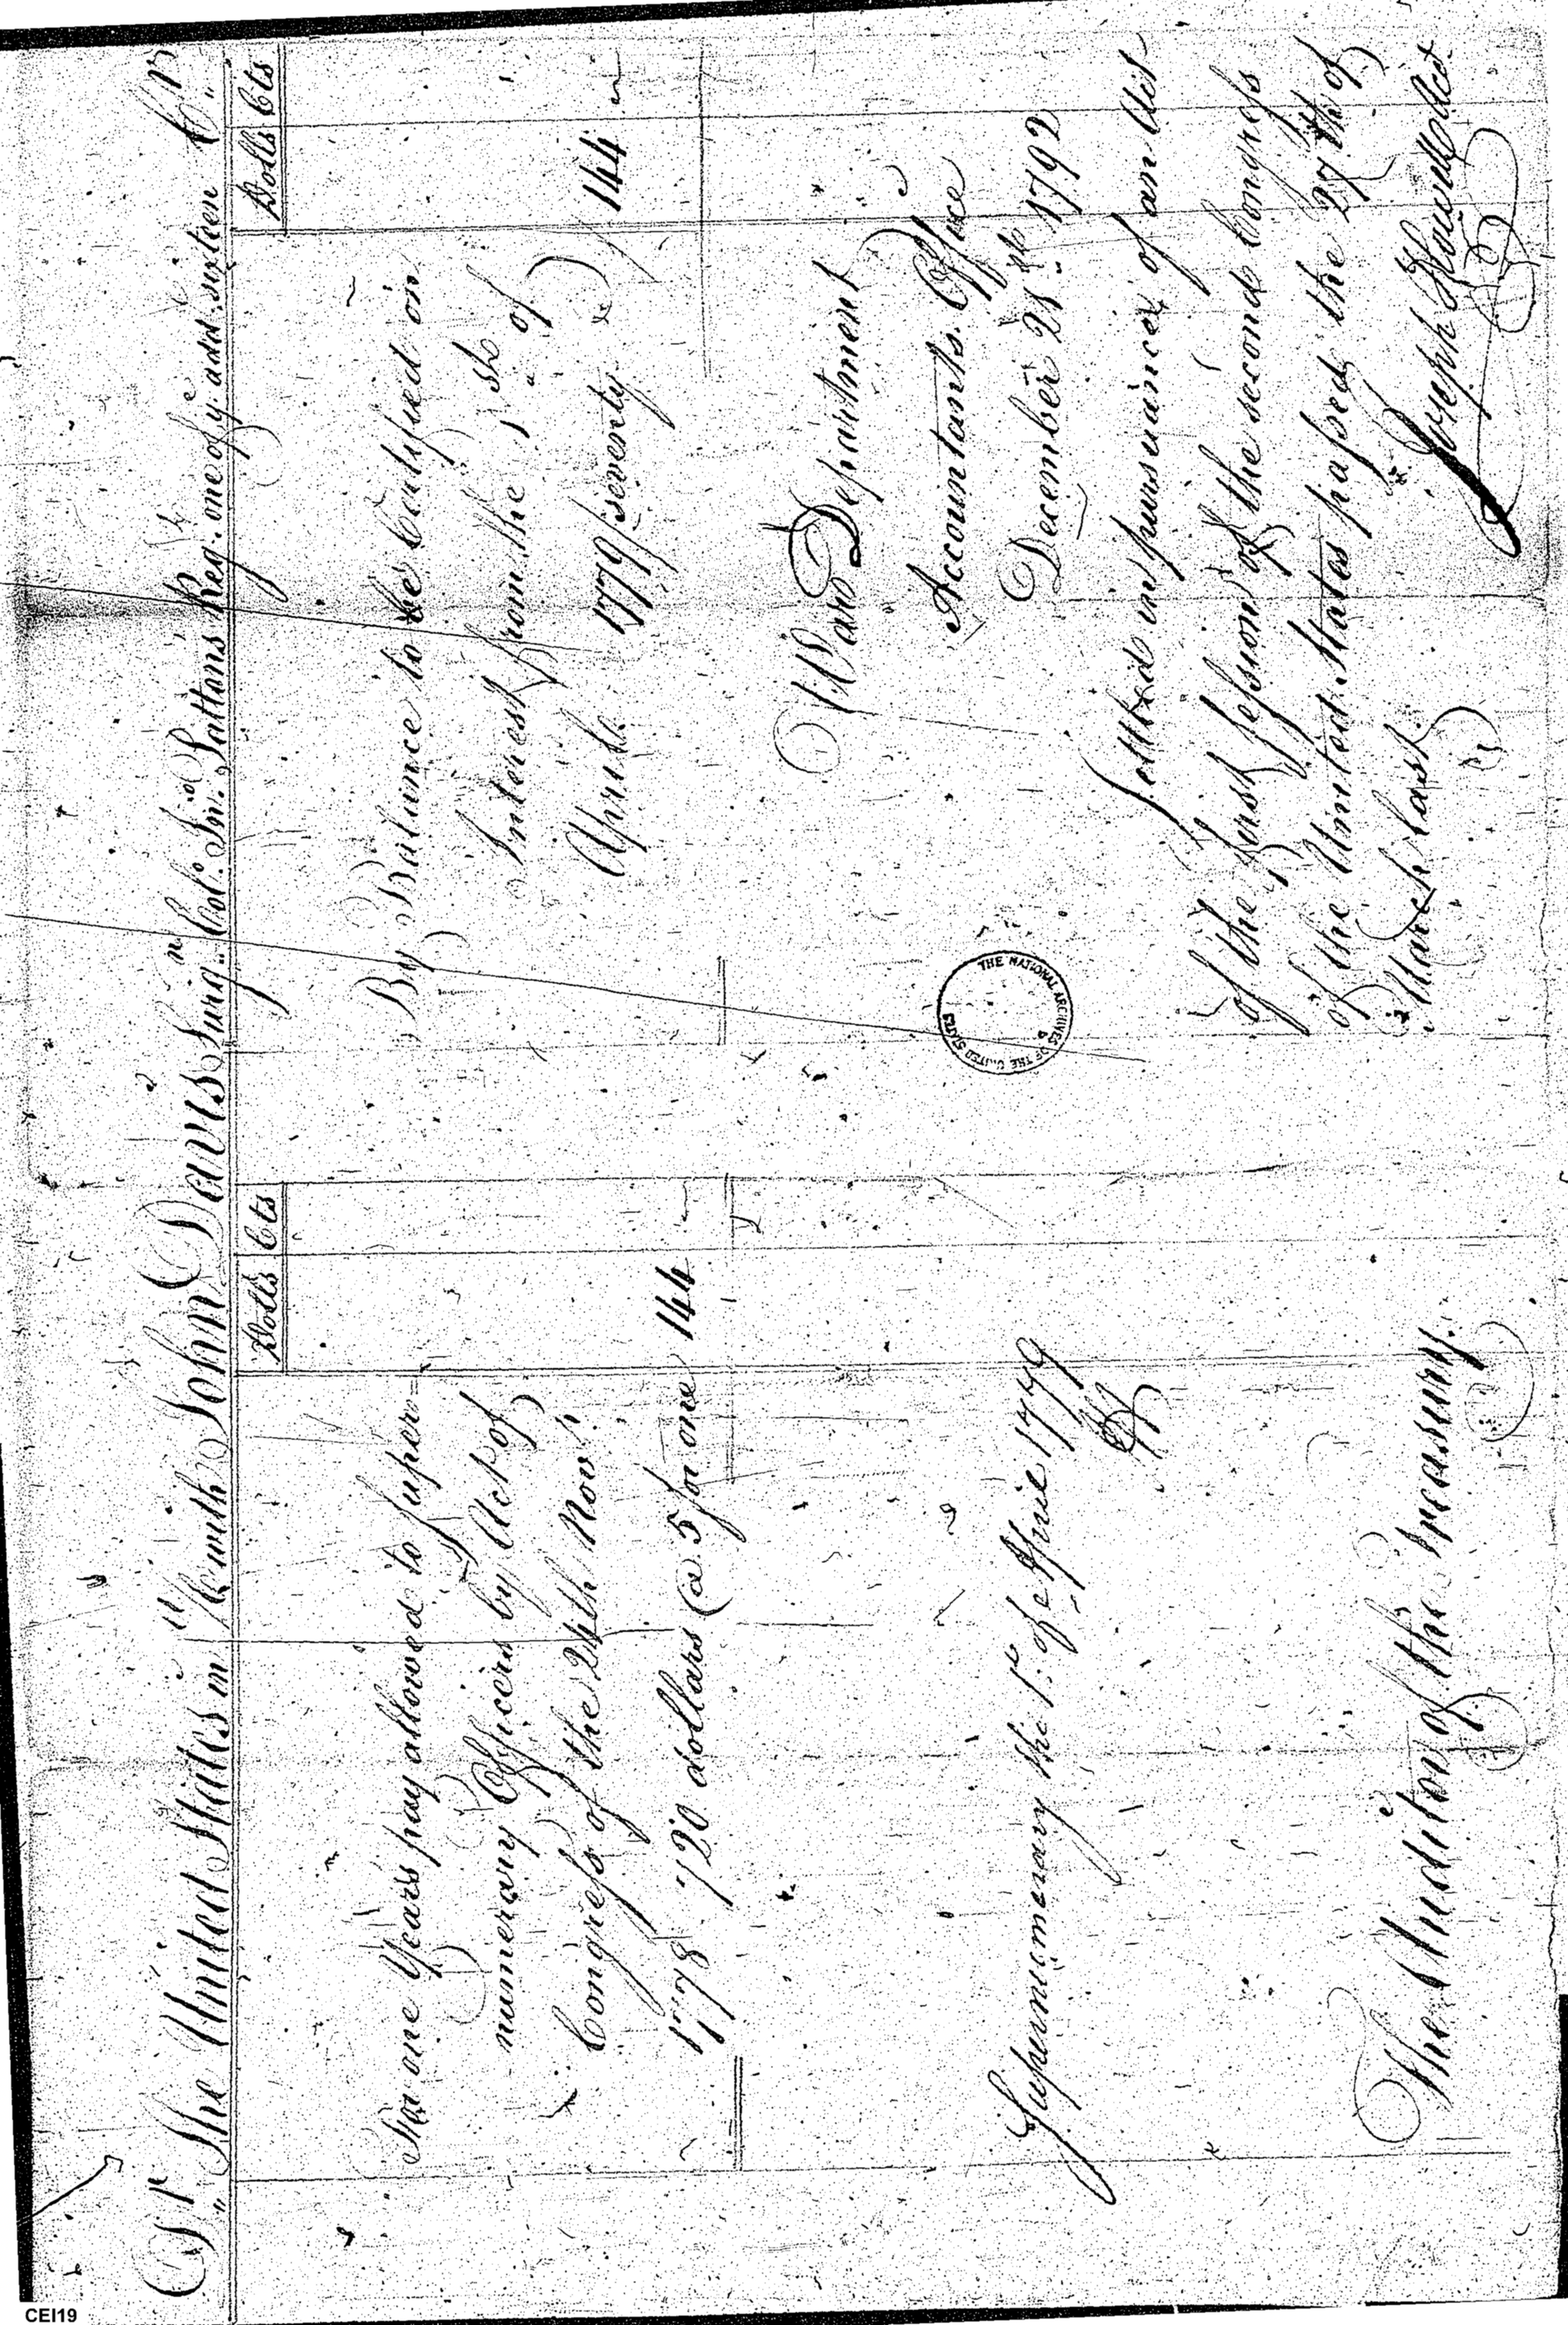 Dr. The United States in Acct with John Davis Surgn. Colo. Jno. Pattons Reg. one of ye addl. sixteen Cr.
Dolls Cts
For one Years pay allowed to super-
numerary Officers by Act of
Congress of the 24th Novr.
1778. 720 dollars @ 5 for one 144 ~
Supernumerary the 1st. of April 1779
JH
The Auditor of the Treasury.
Dolls Cts
By Balance to be Certified on
Interest from the 1st. of
April 1779 / seventy 144 ~
War Department
Accountants Office
December 21st. 1792
Settled in pursuance of an Act
of the first session of the second Congress
of the United States passed the 27th of
March last.
Joseph Howell Acct
THE NATIONAL ARCHIVES OF THE UNITED STATES
CEI19